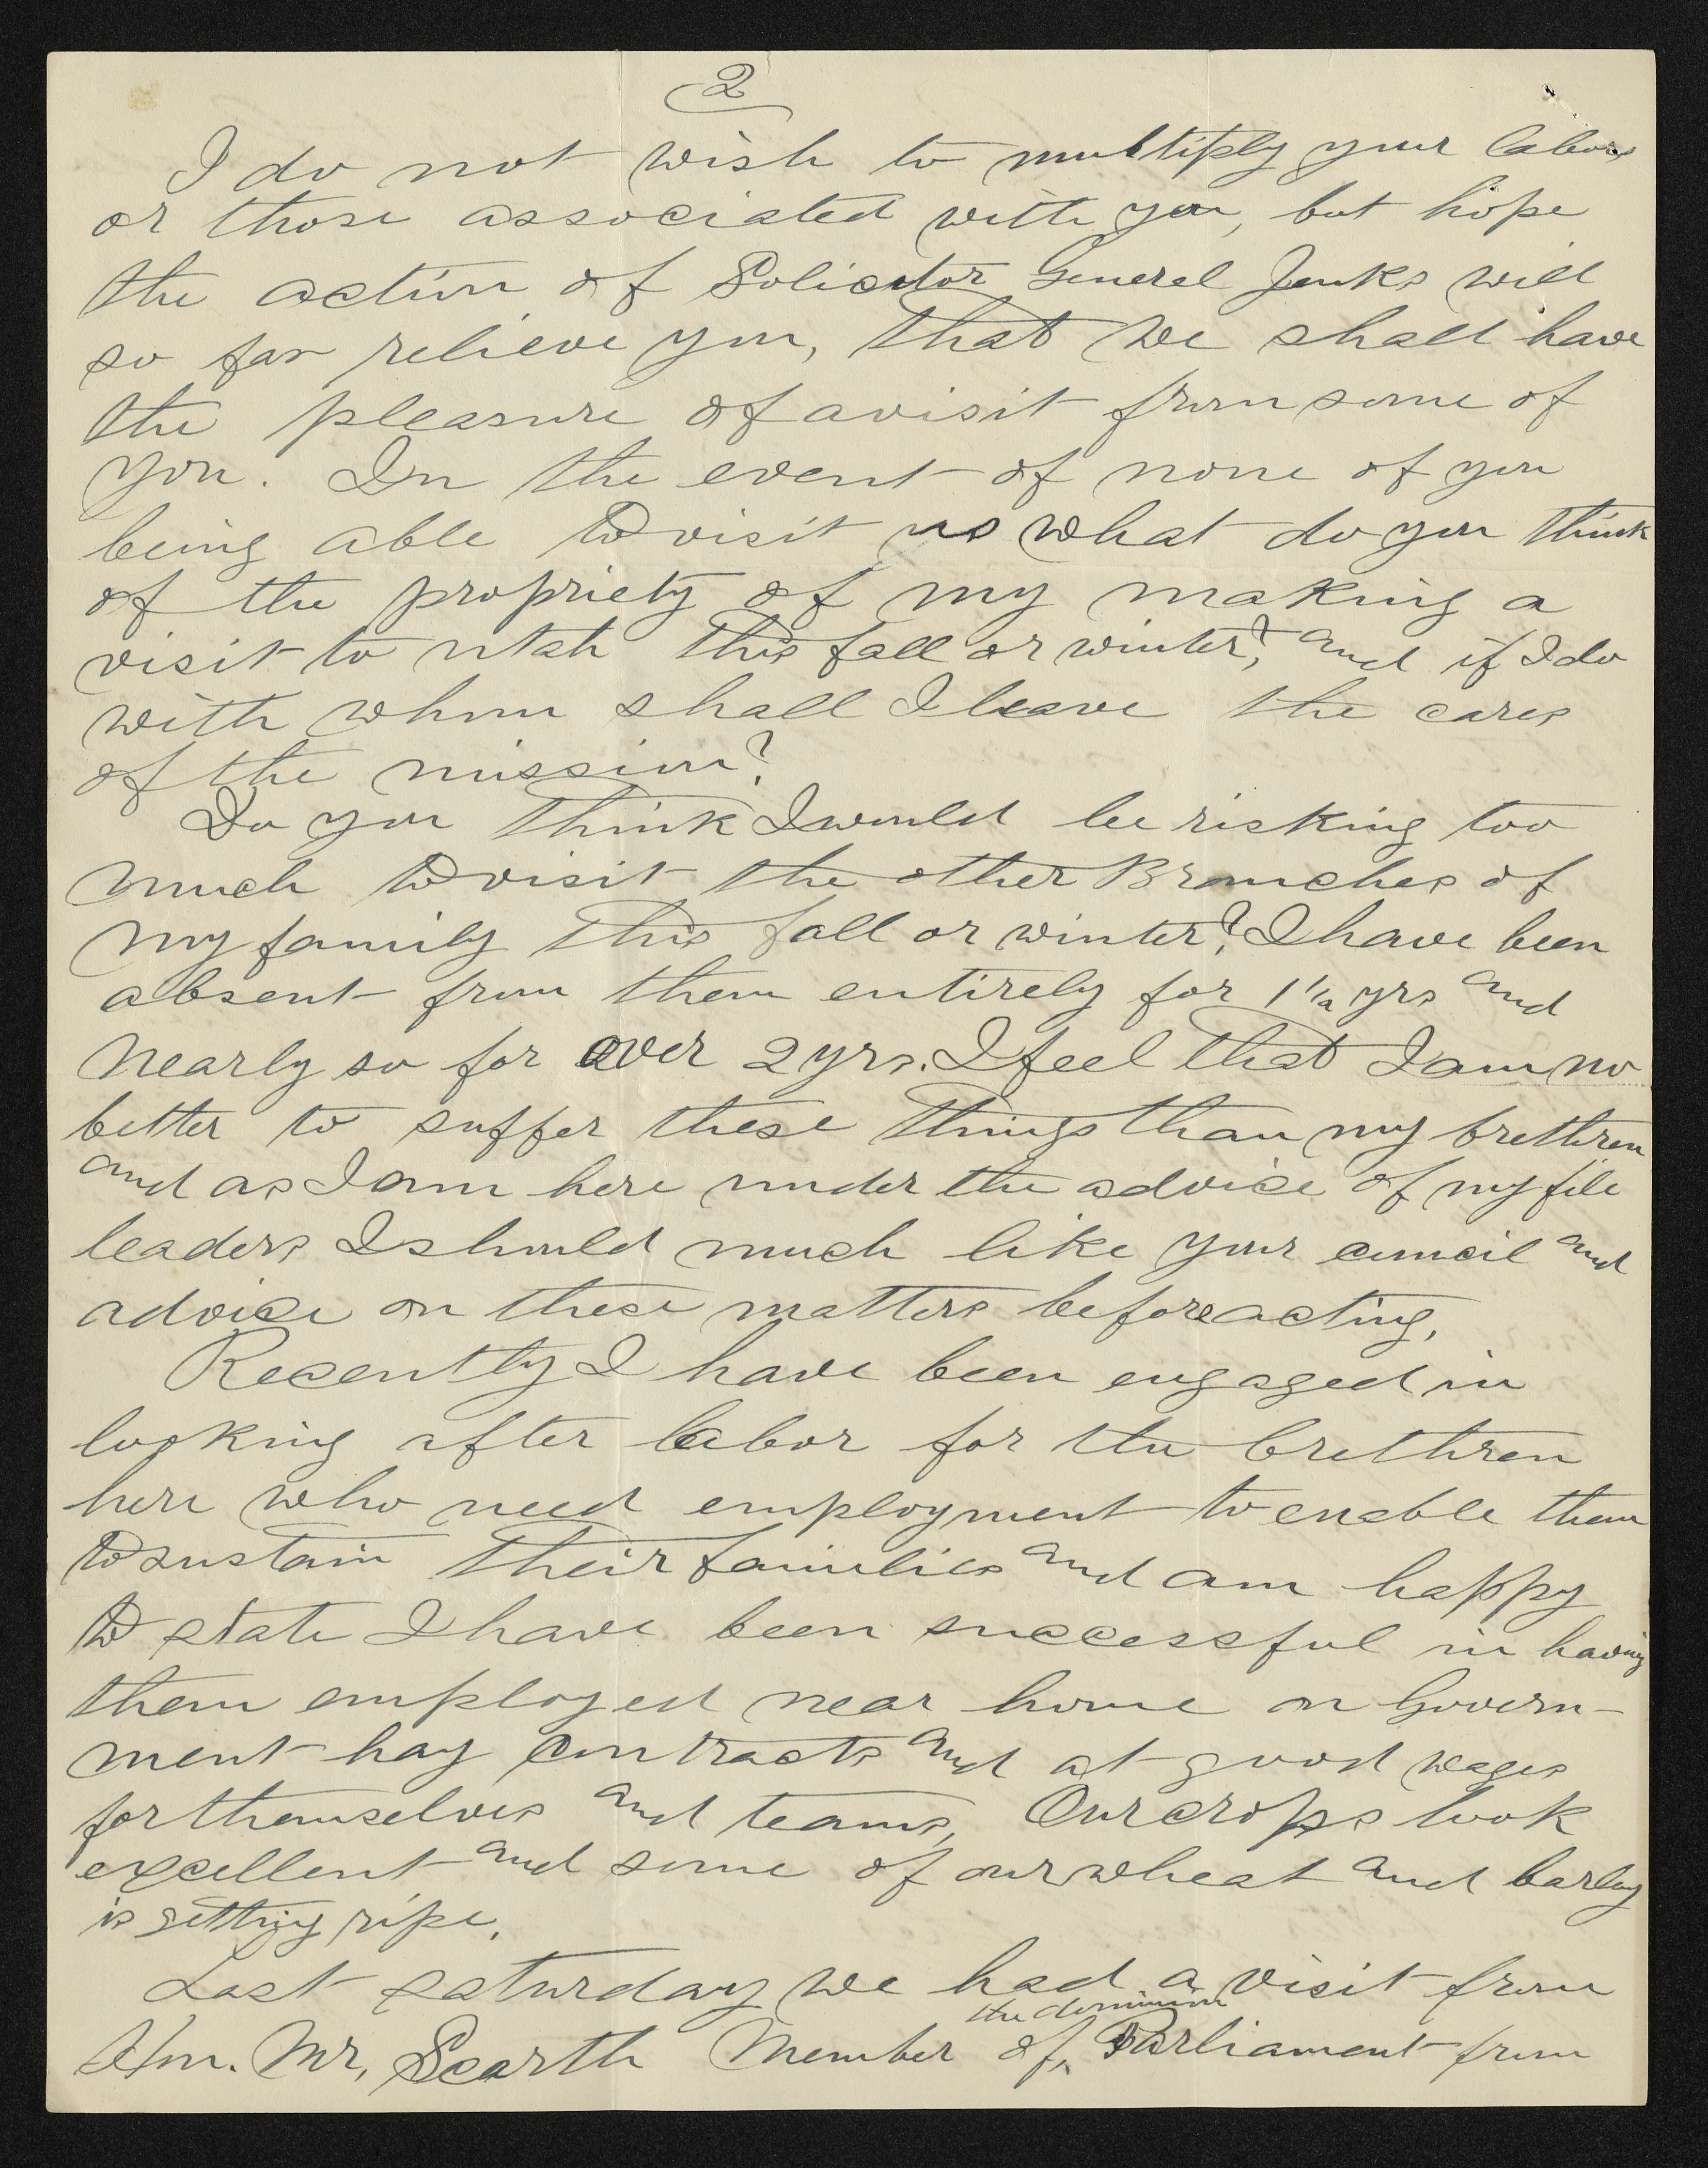 2
I do not wish to multiply your labors
or those associated with you, but hope
the action of Solicitor General Jenks will
so far relieve you, that we shall have
the pleasure of a visit from some of
you. In the event of none of you
being able to visit us what do you think
of the propriety of my making a
visit to utah this fall or winter?, and if I do
with whom shall I leave the cares
of the mission?
Do you think I would be risking too
much to visit the other Branches of
my family this fall or winter? I have been
absent from them entirely for 1 1/2 yrs and
nearly so for over 2 yrs. I feel that I am no
better to suffer these things than my brethren
and as I am here under the advice of my file
leaders I should much like your council and
advice on these matters before acting.
Recently I have been engaged in
looking after labor for the brethren
here who need employment to enable them
to sustain their families and am happy
to state I have been successful in having
them employed near home on Govern-
ment hay contracts and at good wages
for themselves and teams, Our crops look
excellent and some of our wheat and barley
is getting ripe.
Last saturday we had a visit from
the dominion
Hon. Mr, Scarth Member of ‸ Parliament from